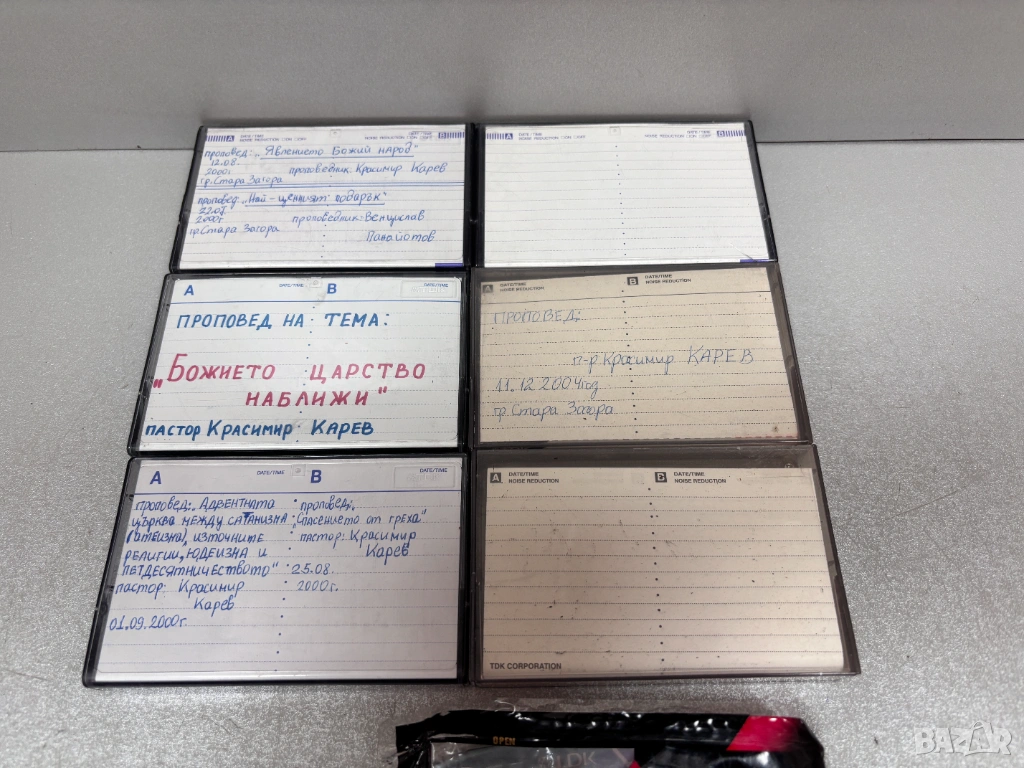 A DATE/TIME
NOISE REDUCTION □ON □OFF
DATE/TIME B
NOISE REDUCTION □ON □OFF
проповед: „Явлението Божий народ"
12.08.
2000г. проповедник: Красимир Карев
гр. Стара Загора
проповед: „Най-ценният подарък"
22.07.
2000г. проповедник: Венцислав
гр. Стара Загора Панайотов
A DATE/TIME
NOISE REDUCTION □ON □OFF
DATE/TIME B
NOISE REDUCTION □ON □OFF
A DATE/TIME B DATE/TIME
ПРОПОВЕД НА ТЕМА:
„БОЖИЕТО ЦАРСТВО
НАБЛИЖИ"
ПАСТОР КРАСИМИР КАРЕВ
A DATE/TIME
NOISE REDUCTION
B DATE/TIME
NOISE REDUCTION
ПРОПОВЕД:
п-р Красимир КАРЕВ
11.12.2004год
гр. Стара Загора
A DATE/TIME B DATE/TIME
проповед: „Адвентната
църква между сатанизма
(атеизма), източните
религии, юдеизма и
петдесятничеството"
пастор: Красимир
Карев
01.09.2000г.
проповед:
„Спасението от греха"
пастор: Красимир
Карев
25.08.
2000г.
A DATE/TIME
NOISE REDUCTION
B DATE/TIME
NOISE REDUCTION
TDK CORPORATION
OPEN
TDK
BAZAR